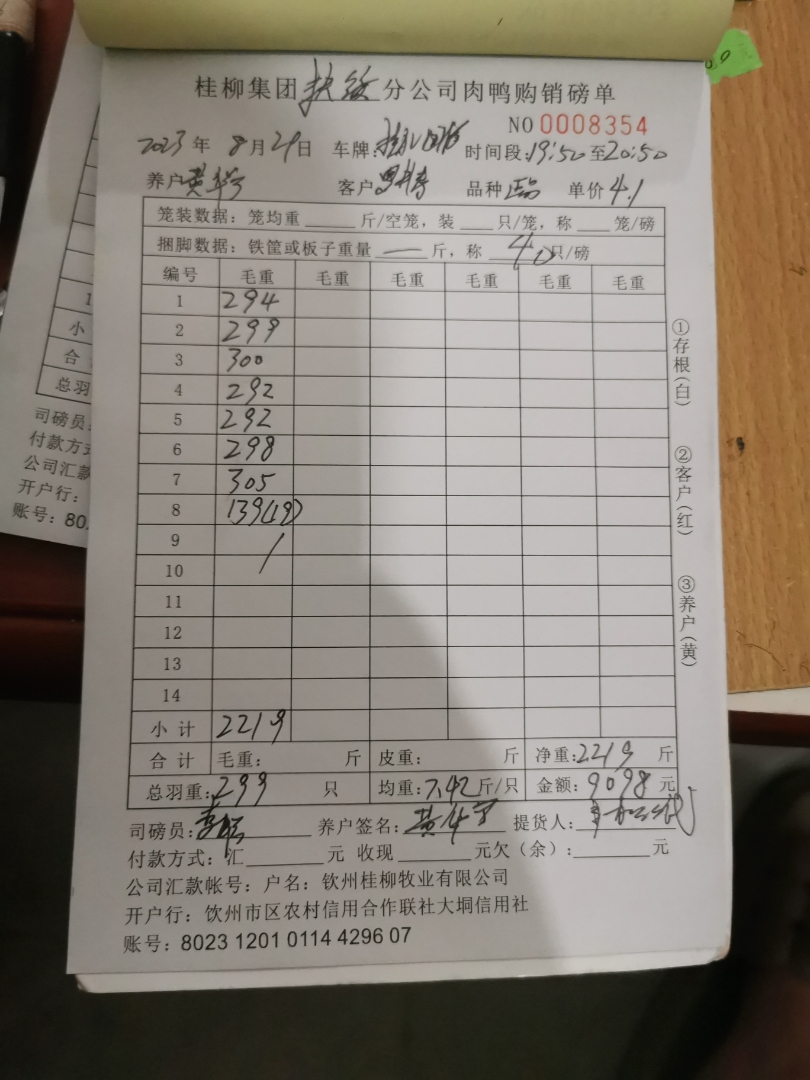 桂柳集团扶绥分公司肉鸭购销磅单
NO 0008354
2023年 8月29日 车牌: 时间段:19:50至20:50
养户 黄华宁 客户 品种 正品 单价 4.1
笼装数据:笼均重 斤/空笼,装 只/笼,称 笼/磅
捆脚数据:铁筐或板子重量 — 斤,称 40 只/磅
编号 毛重 毛重 毛重 毛重 毛重 毛重
1 294
2 299
3 300
4 292
5 292
6 298
7 305
8 139(19)
9 /
10
11
12
13
14
小计 2219
合计 毛重: 斤 皮重: 斤 净重:2219 斤
总羽重:299 只 均重:7.42斤/只 金额:9098元
司磅员: 养户签名:黄华宁 提货人:
付款方式:汇 元 收现 元欠(余): 元
公司汇款帐号:户名:钦州桂柳牧业有限公司
开户行:饮州市区农村信用合作联社大垌信用社
账号:8023 1201 0114 4296 07
①存根(白)
②客户(红)
③养户(黄)
1
小
合
总羽
司磅员:
付款方式
公司汇款
开户行:
账号:80